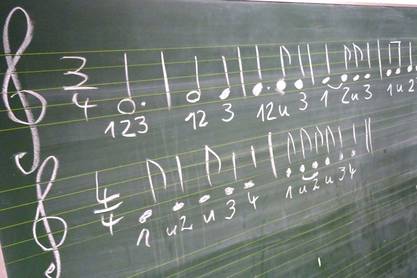 3
4
123 12 3 12u 3 1 2u 3 1u
4
4
1 u2 u 3 4 1 u 2 u 3 4